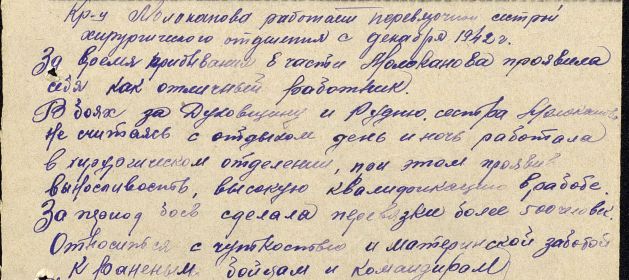 Кр-ц Молоканова работает перевязочной сестрой
хирургического отделения с декабря 1942 г.
За время прибывания в части Молоканова проявила
себя как отличный работник.
В боях за Духовщину и Рудню сестра Молоканова
не считаясь с отдыхом день и ночь работала
в хирургическом отделении, при этом проявив
выносливость, высокую квалификацию в работе.
За период боев сделала перевязки более 500 человек.
Относиться с чуткостью и материнской заботой
к раненым бойцам и командирам